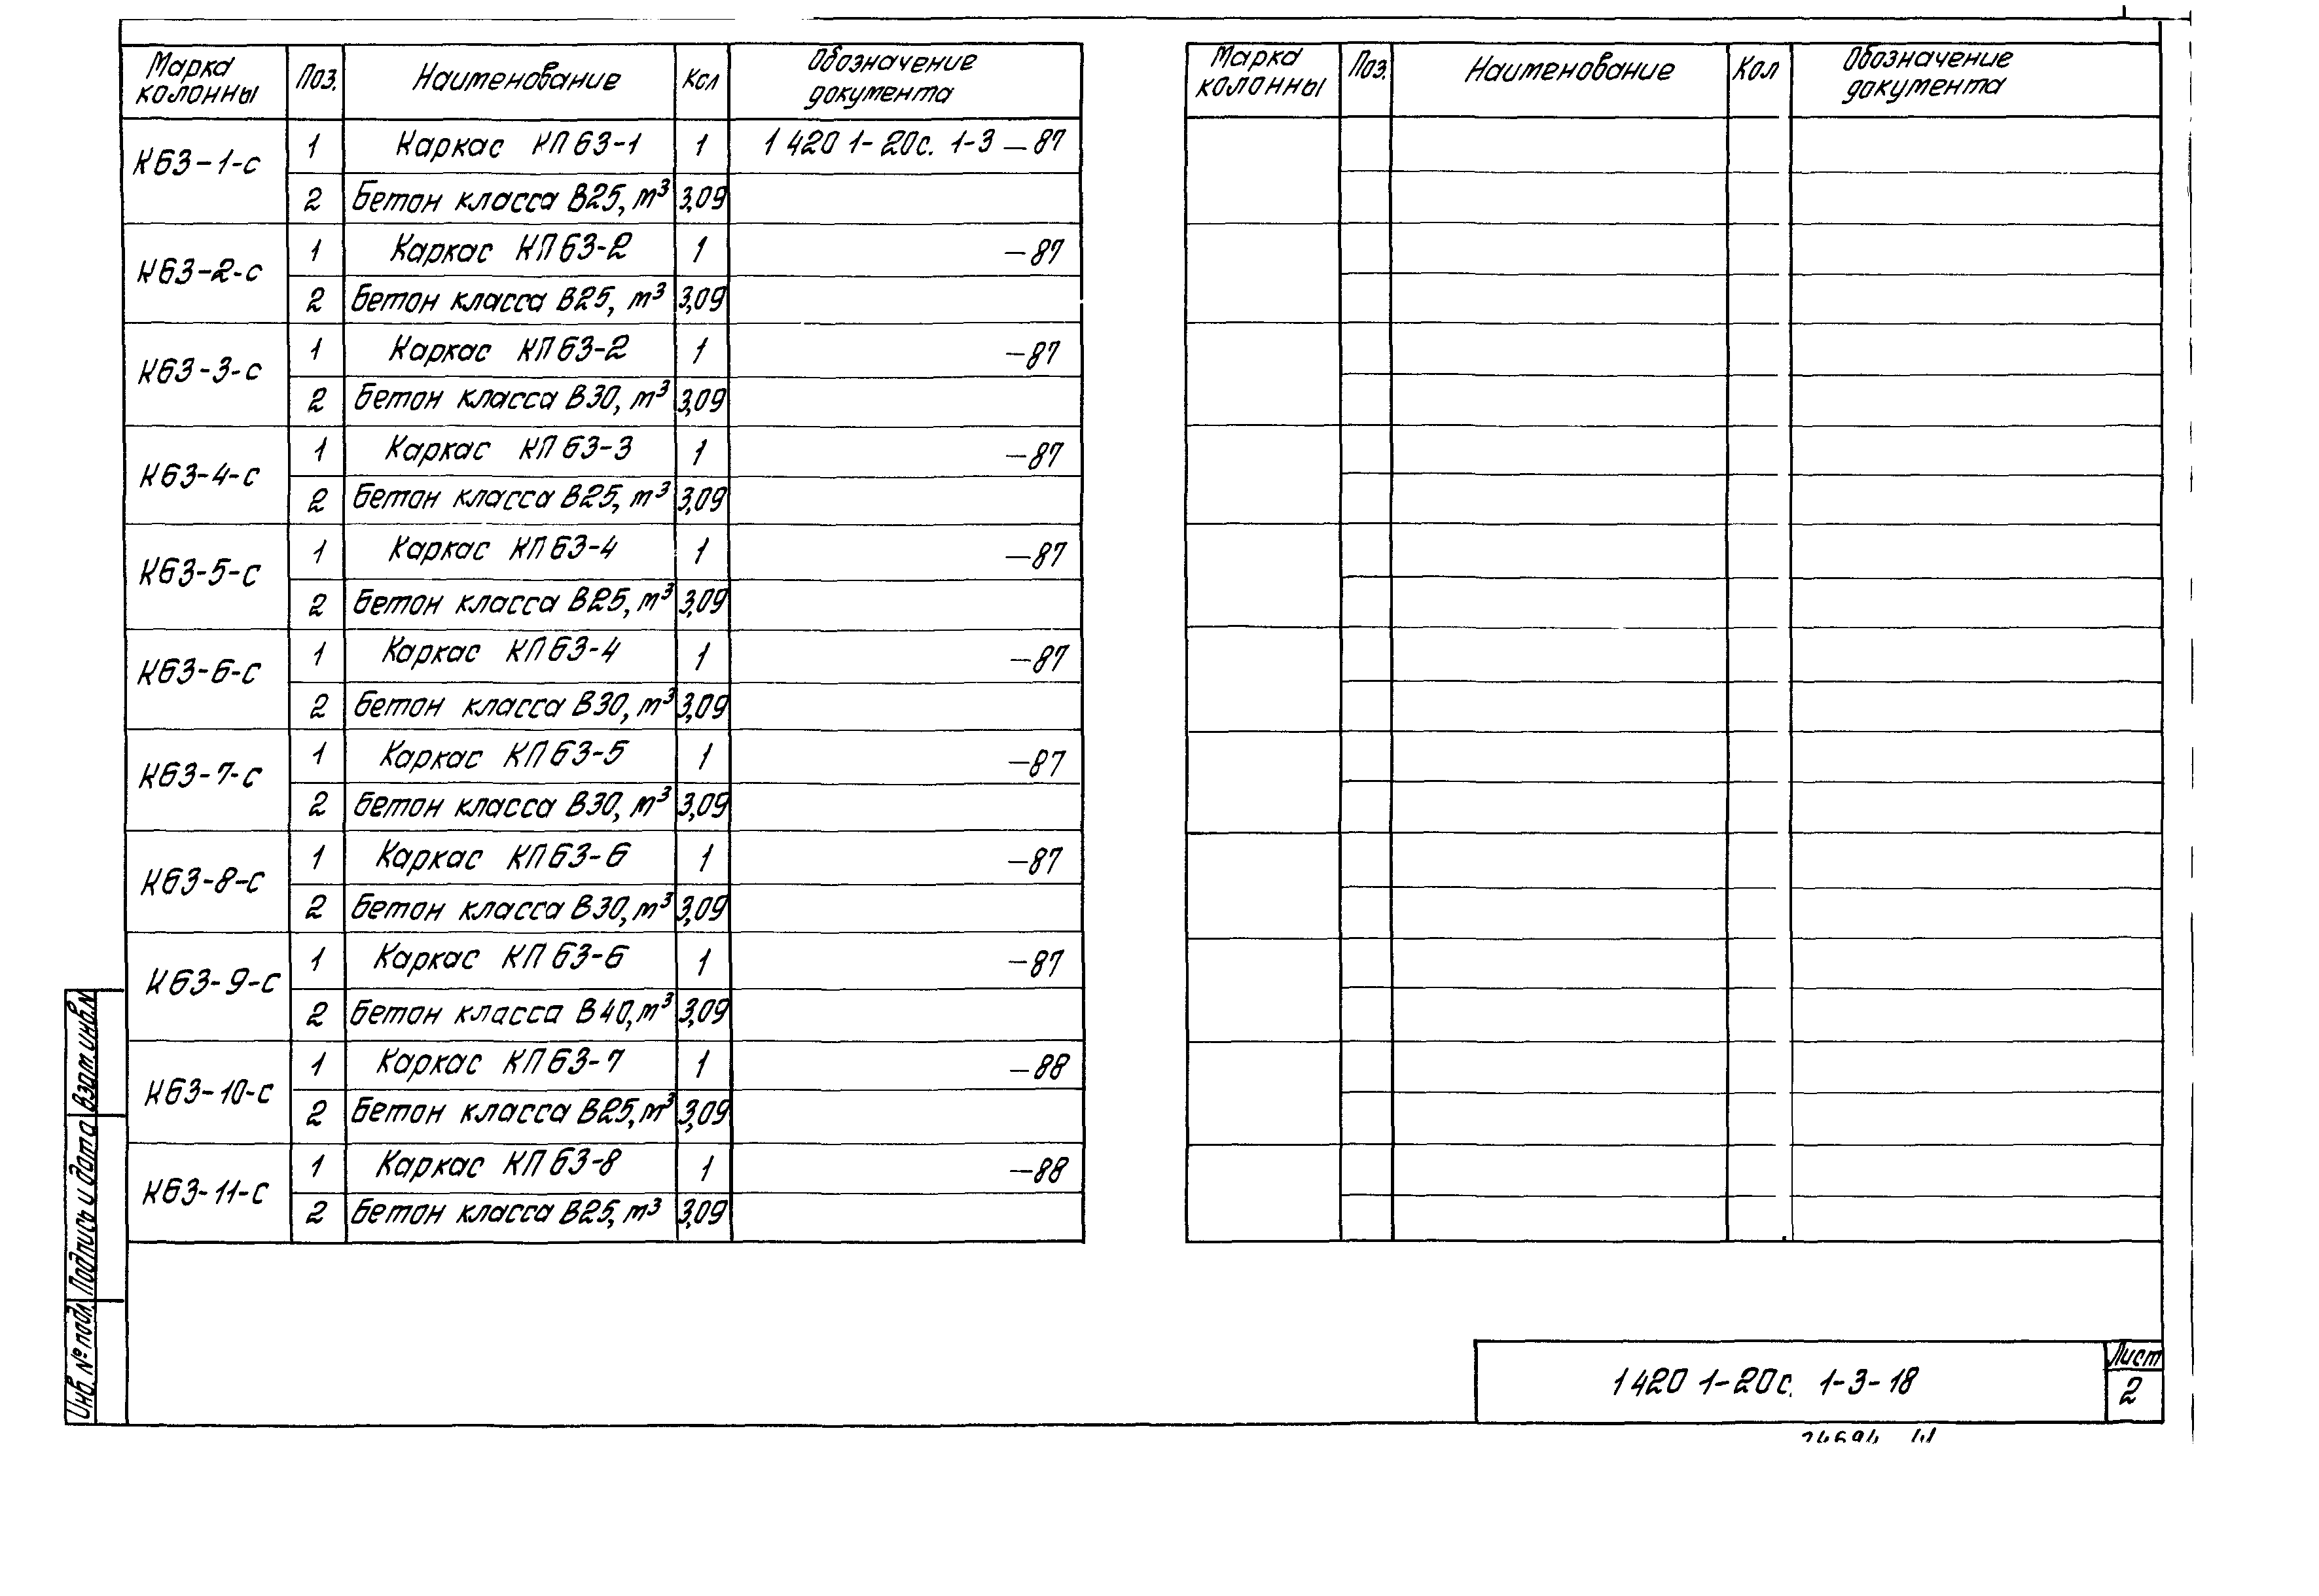 Марка колонны Поз. Наименование Кол Обозначение документа
К63-1-с 1 Каркас КП63-1 1 1 420 1-20с. 1-3 -87
2 Бетон класса В25, m³ 3,09
К63-2-с 1 Каркас КП63-2 1 -87
2 Бетон класса В25, m³ 3,09
К63-3-с 1 Каркас КП63-2 1 -87
2 Бетон класса В30, m³ 3,09
К63-4-с 1 Каркас КП63-3 1 -87
2 Бетон класса В25, m³ 3,09
К63-5-с 1 Каркас КП63-4 1 -87
2 Бетон класса В25, m³ 3,09
К63-6-с 1 Каркас КП63-4 1 -87
2 Бетон класса В30, m³ 3,09
К63-7-с 1 Каркас КП63-5 1 -87
2 Бетон класса В30, m³ 3,09
К63-8-с 1 Каркас КП63-6 1 -87
2 Бетон класса В30, m³ 3,09
К63-9-с 1 Каркас КП63-6 1 -87
2 Бетон класса В40, m³ 3,09
К63-10-с 1 Каркас КП63-7 1 -88
2 Бетон класса В25, m³ 3,09
К63-11-с 1 Каркас КП63-8 1 -88
2 Бетон класса В25, m³ 3,09
Марка колонны Поз. Наименование Кол Обозначение документа
Инв. № подл. Подпись и дата Взам. инв. N
1 420 1-20с. 1-3-18
Лист
2